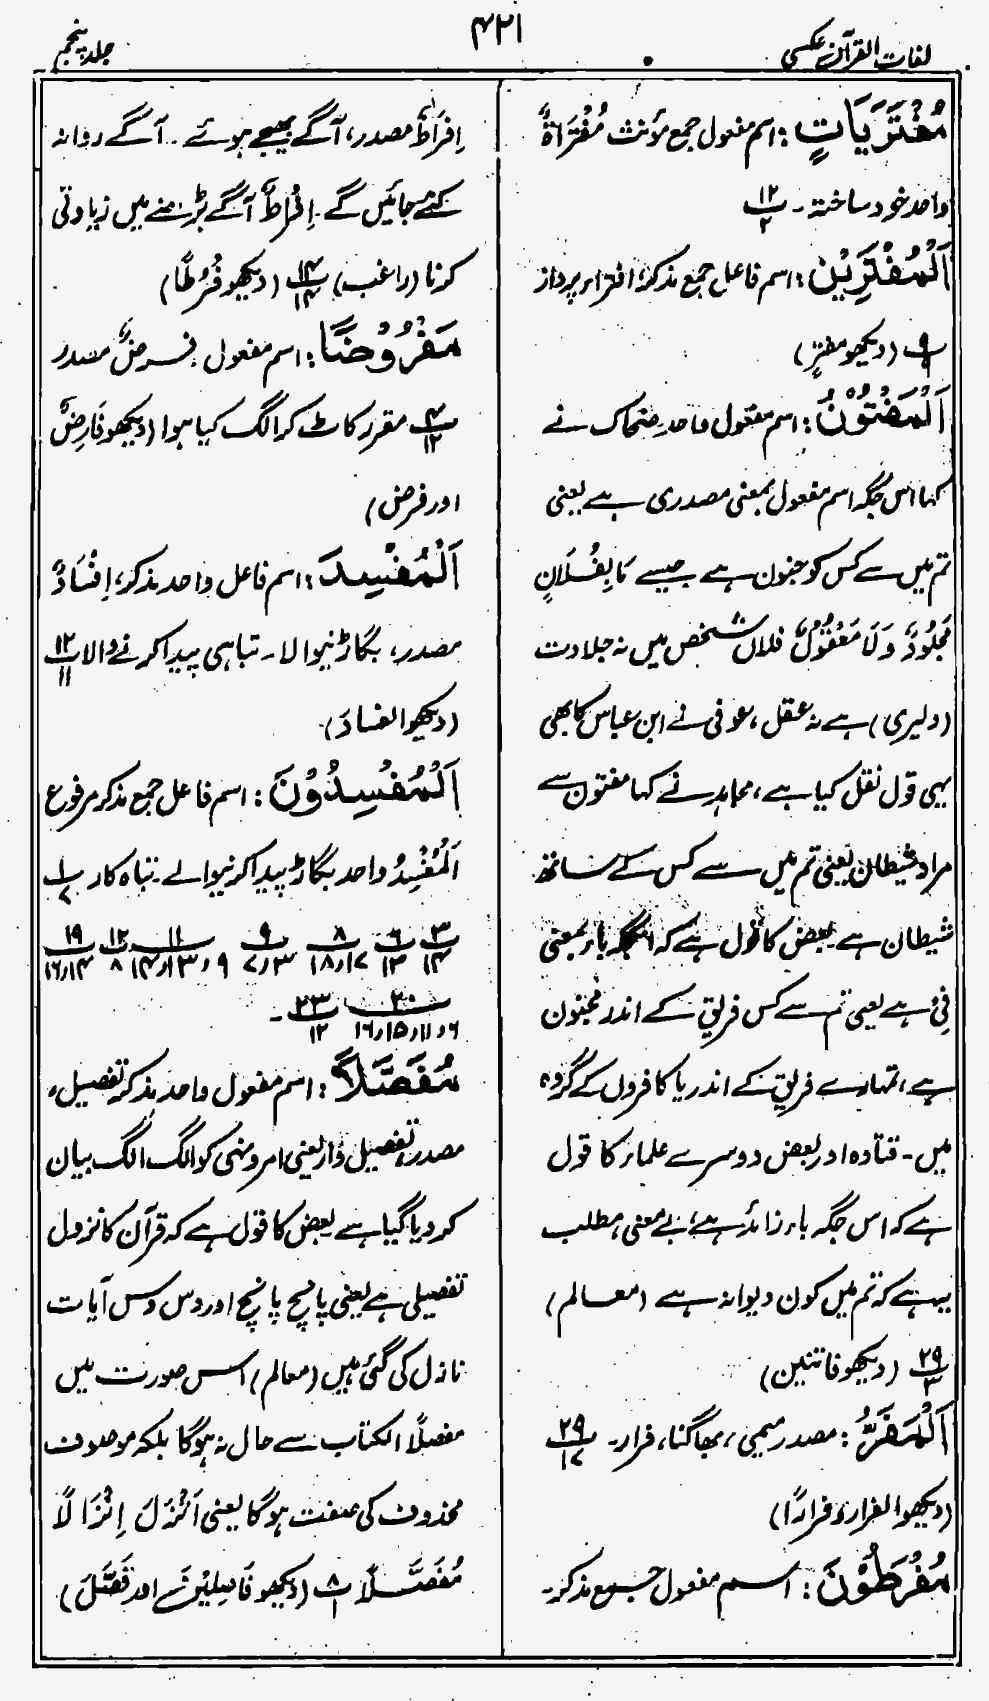 لغات القرآن عکسی
۴۲۱
جلد پنجم
مُفْتَرَيَاتٍ: اسم مفعول جمع مؤنث مُفْتَرَاةٌ
واحد خود ساختہ۔ پ۱۲/۲
اَلْمُفْتَرِيْنَ: اسم فاعل جمع مذکر، افتراء پرداز
پ۹ (دیکھو مفترٍ)
اَلْمَفْتُوْنُ: اسم مفعول واحد۔ ضحاک نے
کہا اس جگہ اسم مفعول بمعنی مصدری ہے یعنی
تم میں سے کس کو جنون ہے جیسے مَا بِفُلَانٍ
مَجْلُوْدٌ وَلَا مَعْقُوْلٌ فلاں شخص میں نہ جلادت
(دلیری) ہے نہ عقل، عوفی نے ابن عباس کا بھی
یہی قول نقل کیا ہے، مجاہد نے کہا مفتون سے
مراد شیطان یعنی تم میں سے کس کے ساتھ
شیطان ہے۔ بعض کا قول ہے کہ اس جگہ باء بمعنی
فِیْ ہے یعنی تم سے کس فریق کے اندر مجنون
ہے، تمہارے فریق کے اندر یا کافروں کے گروہ
میں۔ قتادہ اور بعض دوسرے علماء کا قول
ہے کہ اس جگہ باء زائد ہے، بے معنی، مطلب
یہ ہے کہ تم میں کون دیوانہ ہے (معالم)
پ۲۹/۳ (دیکھو فاتنین)
اَلْمَفَرُّ: مصدر میمی، بھاگنا، فرار۔ پ۲۹/۱۷
(دیکھو الفرار، فرارًا)
مُفْرَطُوْنَ: اسم مفعول جمع مذکر۔
اِفْرَاطٌ مصدر، آگے بھیجے ہوئے۔ آگے روانہ
کئے جائیں گے۔ اِفْرَاطٌ آگے بڑھنے میں زیادتی
کرنا (راغب) پ۱۴/۱۴ (دیکھو فُرُطًا)
مَفْرُوْضًا: اسم مفعول فرضٌ مصدر
پ۴/۱۲ مقرر کاٹ کر الگ کیا ہوا (دیکھو فَارِضٌ
اور فرض)
اَلْمُفْسِدَ: اسم فاعل واحد مذکر، اِفْسَادٌ
مصدر، بگاڑنیوالا۔ تباہی پیدا کرنے والا پ۱۲/۱۱
(دیکھو الفسادَ)
اَلْمُفْسِدُوْنَ: اسم فاعل جمع مذکر مرفوع
اَلْمُفْسِدُ واحد بگاڑ پیدا کرنیوالے۔ تباہ کار پ۱/۲
پ۳/۱۴ پ۶/۱۳ پ۸/۱۷،۱۸ پ۹/۳،۷ پ۱۱/۹،۱۳،۱۴ پ۱۲/۸ پ۱۹/۱۴،۱۶
پ۲۰/۶،۱۱،۱۵،۱۶ پ۲۳/۱۲۔
مُفَصَّلًا: اسم مفعول واحد مذکر تفصیل،
مصدر، تفصیل وار یعنی امر و نہی کو الگ الگ بیان
کر دیا گیا ہے بعض کا قول ہے کہ قرآن کا نزول
تفصیلی ہے یعنی پانچ پانچ اور دس دس آیات
نازل کی گئی ہیں (معالم) اس صورت میں
مفصلًا الکتاب سے حال نہ ہوگا بلکہ موصوف
محذوف کی صفت ہوگا یعنی اَنْزَلَ اِنْزَالًا
مُفَصَّلًا پ۸/۱ (دیکھو فَاصِلِيْنَ اور فَصَّلَ)